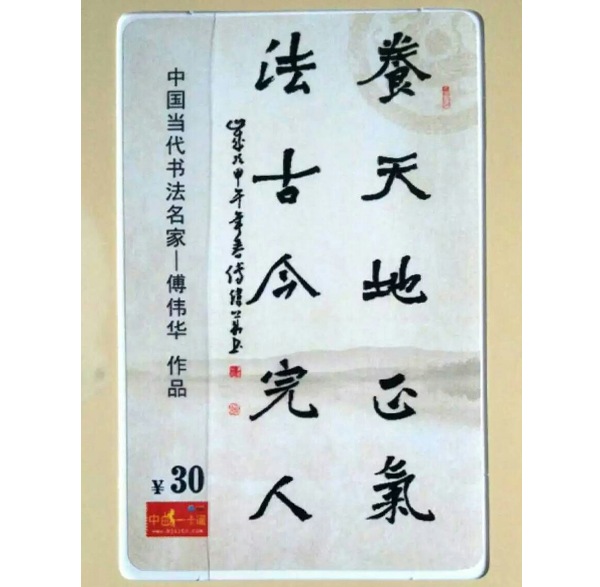 養天地正氣
法古今完人
中国当代书法名家—傅伟华 作品
¥30